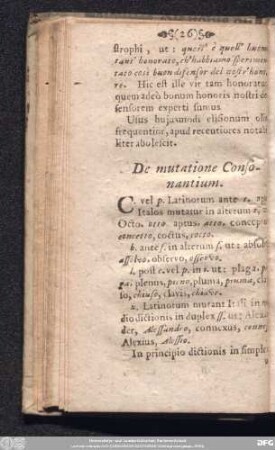 (26)
strophi, ut: quell' è quell' huom
tant' honorato, ch' habbiamo sperimen
tato così buon difensor del nostr' hono
re. Hic est ille vir tam honoratus
quem adeò bonum honoris nostri de
fensorem experti sumus.
Usus hujusmodi elisionum olim
frequentior, apud recentiores notabi
liter abolescit.
De mutatione Conso-
nantium.
C. vel p. Latinorum ante t.
Italos mutatur in alterum t,
Octo. otto. aptus. atto. concep
concetto, coctus, cotto.
b. ante s. in alterum s. ut: absol
observo, osservo.
l. post c. vel p. in i. ut: plaga. pi
ga. plenus, pieno, pluma, piuma, clau
so, chiuso, clavis, chiave.
x. Latinorum mutant Itali in me
dio dictionis in duplex ss. ut: Alexan
der, Alessandro, connexus, connes
Alexius, Alessio.
In principio dictionis in simplex